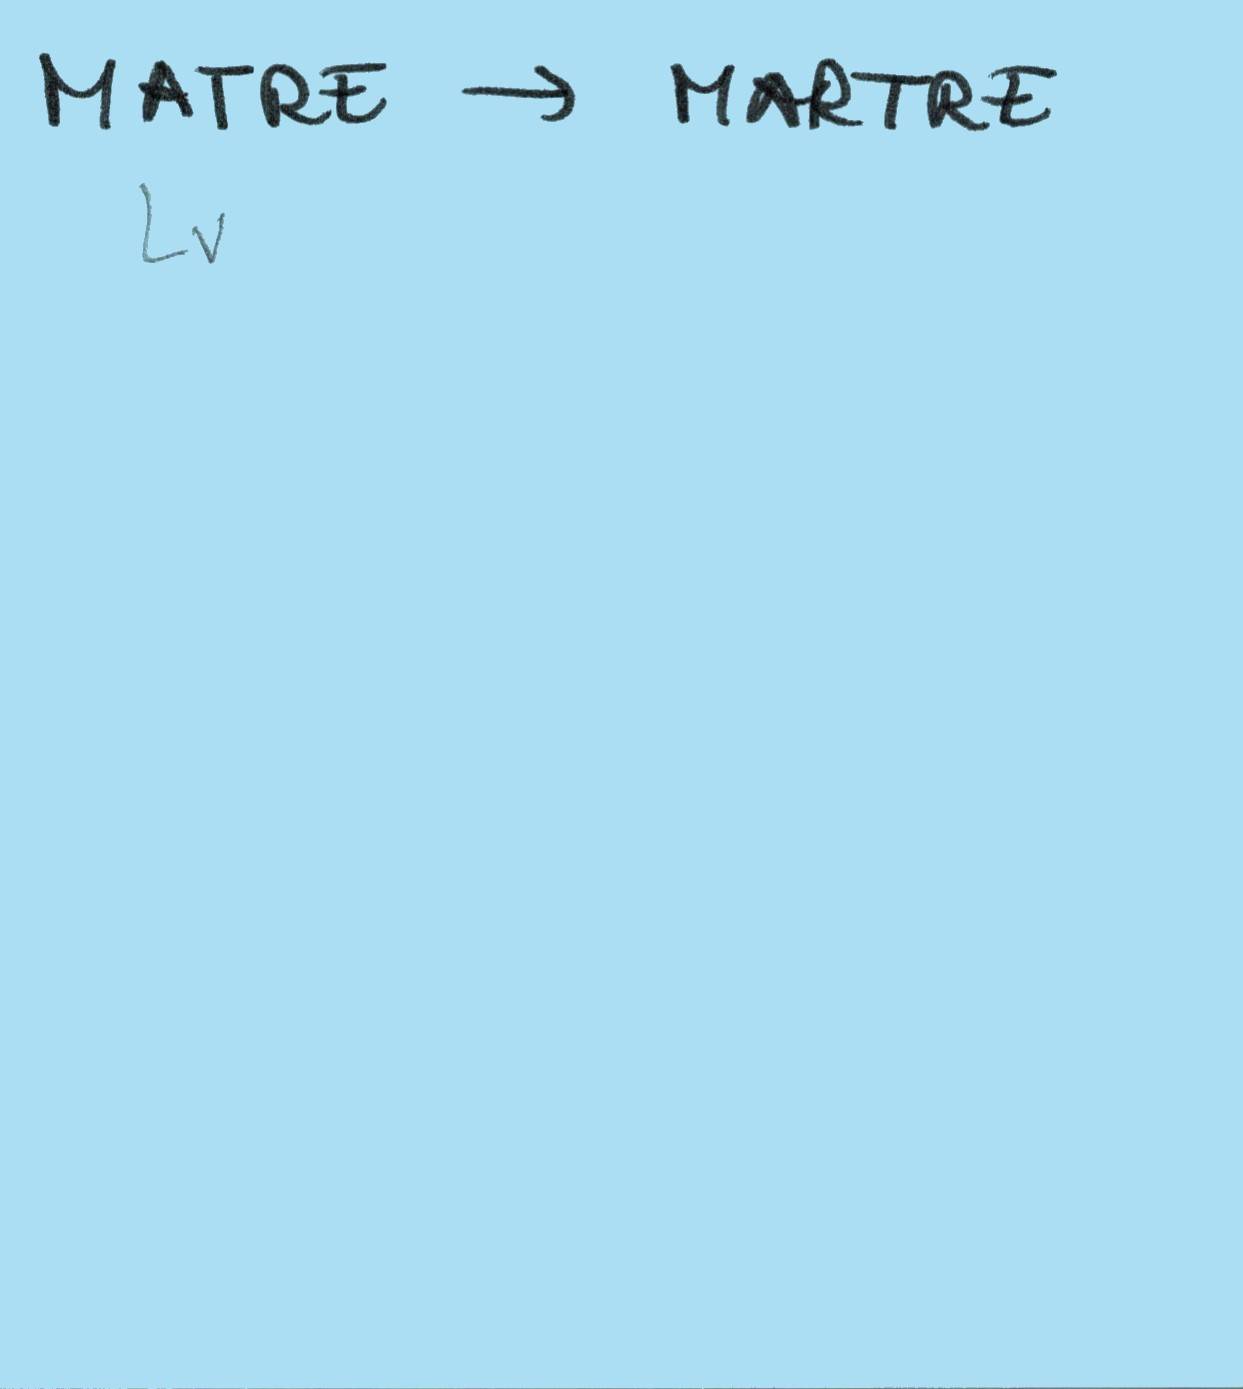 MATRE → MARTRE
Lv